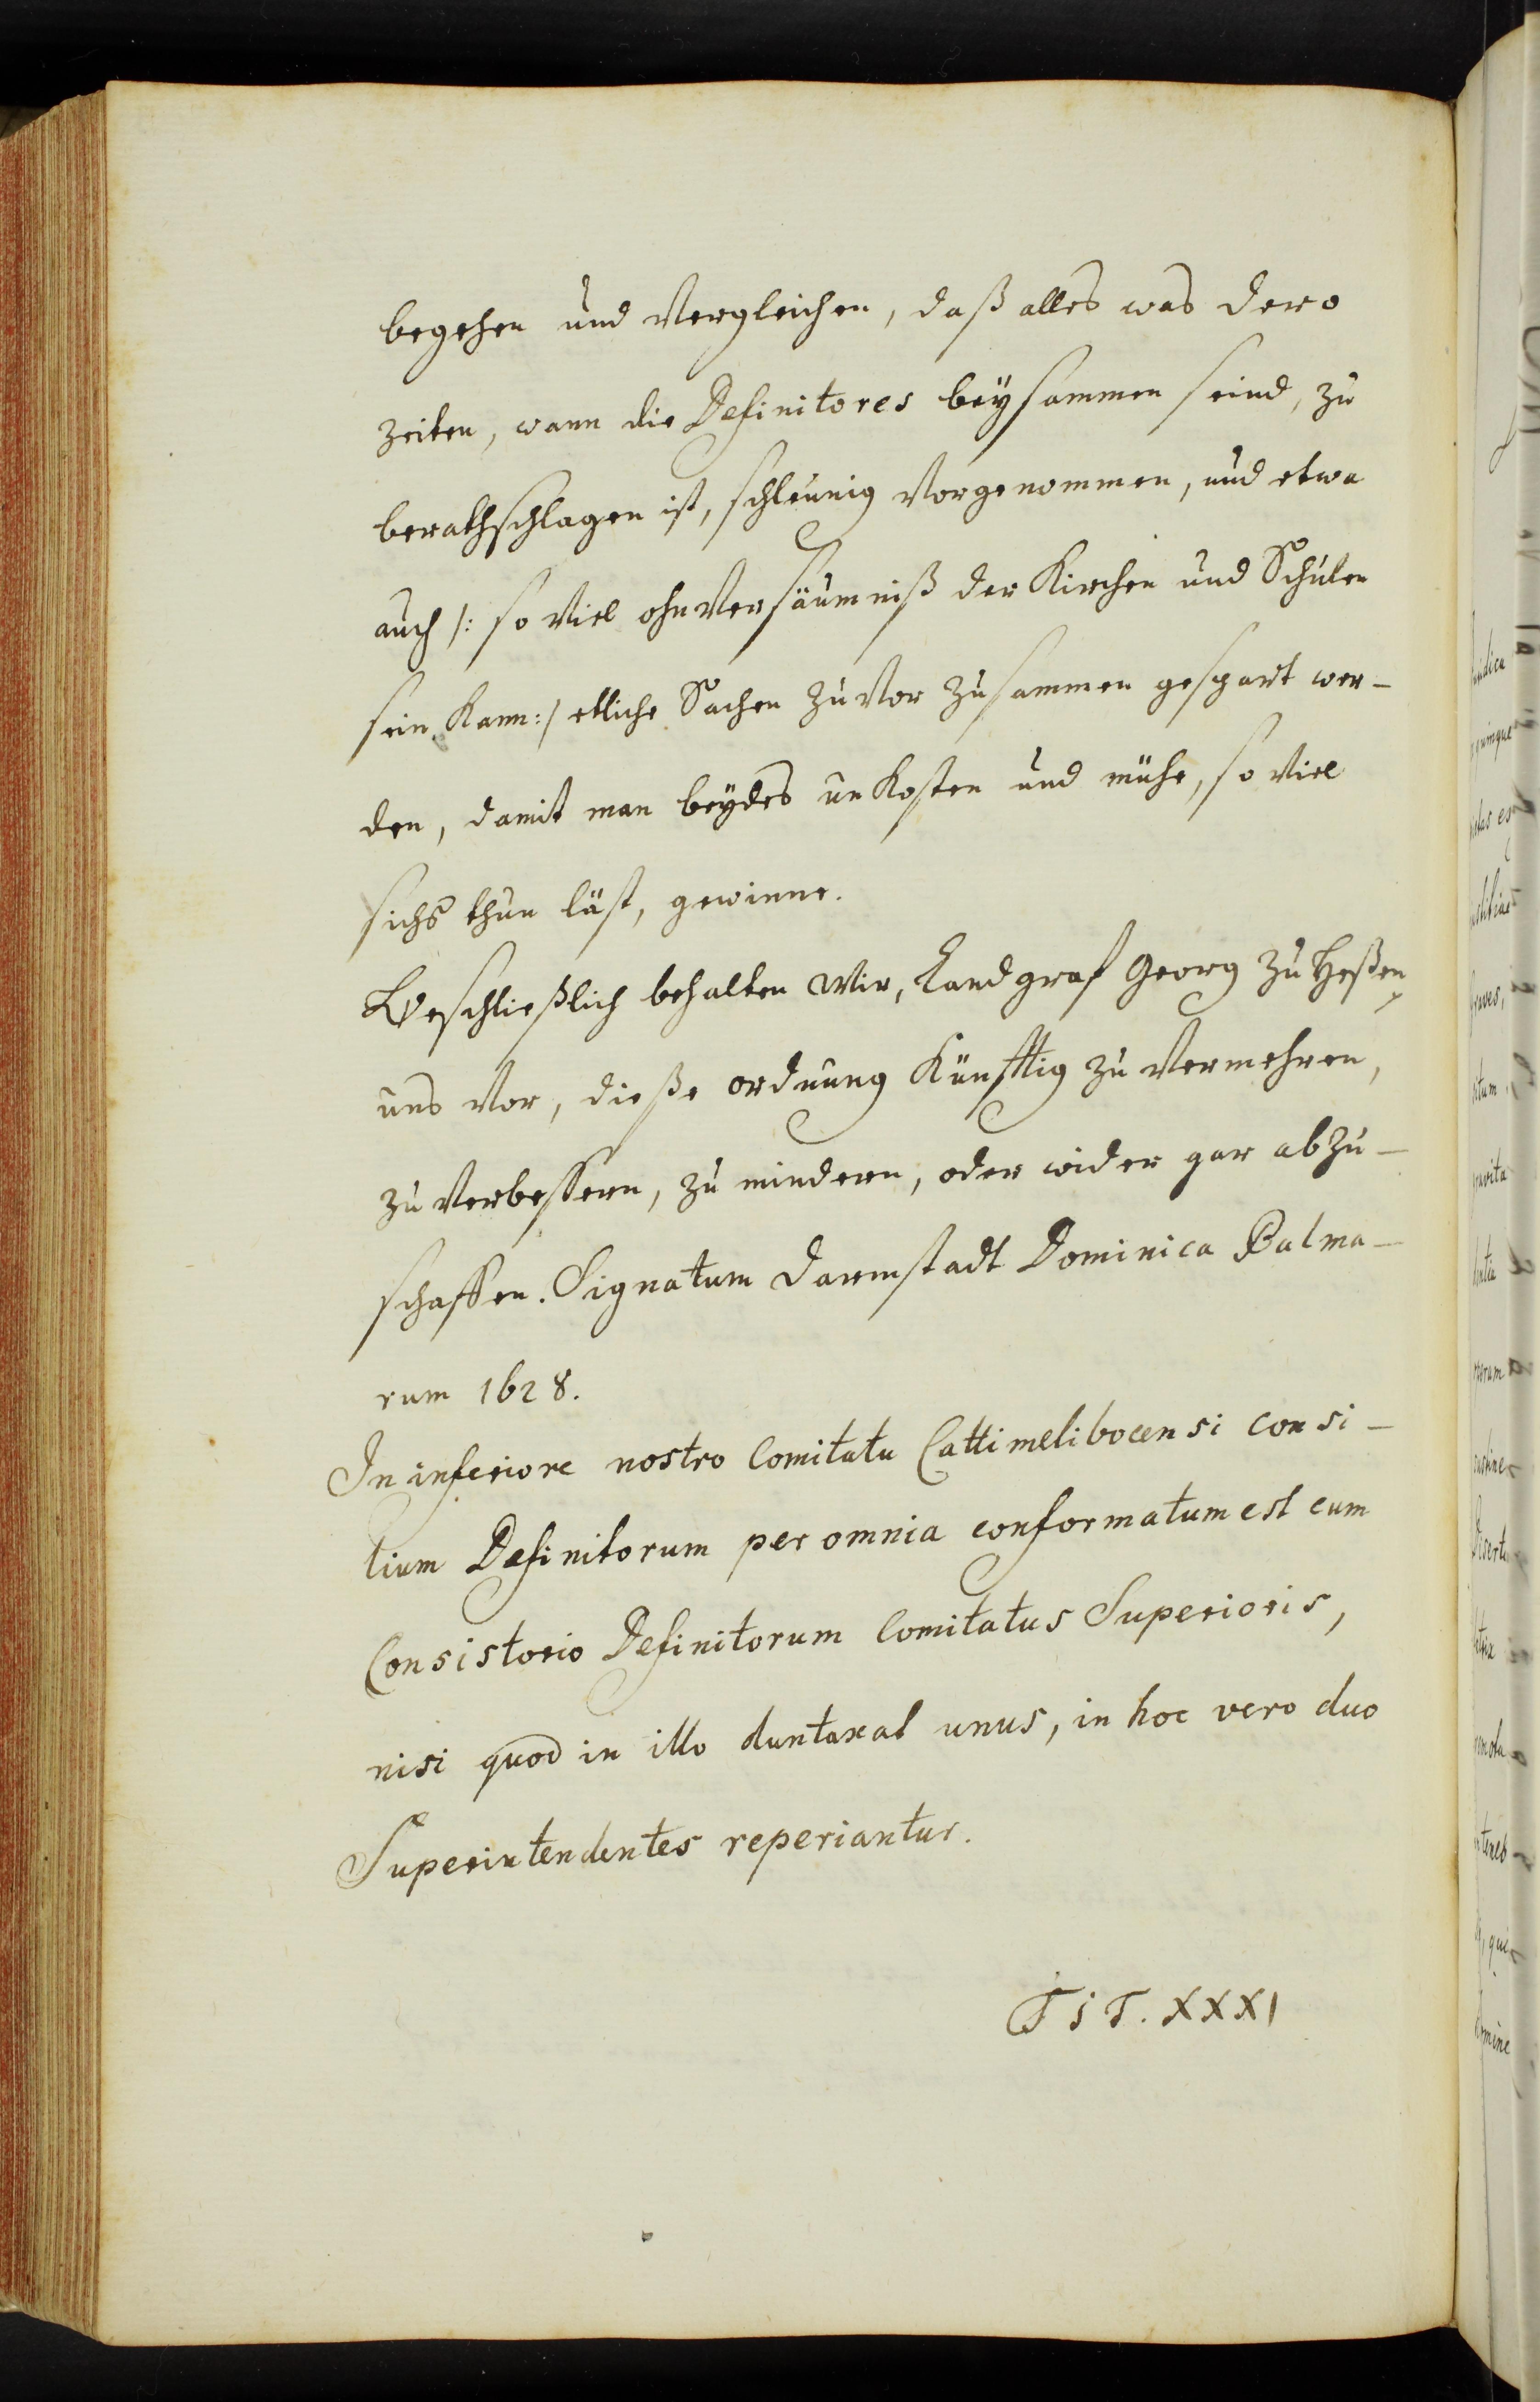 begehen und Vergleichen, daß alles was dero
zeiten, wann die Definitores beysammen seind, zu
berathschlagen ist, schleunig Vorgenommen, und etwa
auch /: so Viel ohn Versäumniß der Kirchen und Schulen
sein Kann :/ etliche Sachen zuvor zusammen gespart wer-
den, damit man beydes un Kosten und mühe, so Viel
sichs thun läst, gewinne.
Beschließlich behalten Wir, Landgraf Georg zu Heßen,
uns Vor, dieße ordnung Künfftig zu Vermehren,
zu Verbessern, zu mindern, oder wider gar abzu-
schaffen. Signatum Darmstadt Dominica Palma-
rum 1628.
In inferiore nostro Comitatu Cattimelibocensi consi-
tium Definitorum per omnia conformatum est cum
Consistorio Definitorum Comitatus Superioris,
nisi quod in illo duntaxat unus, in hoc vero duo
Superintendentes reperiantur.
TiT. XXXI